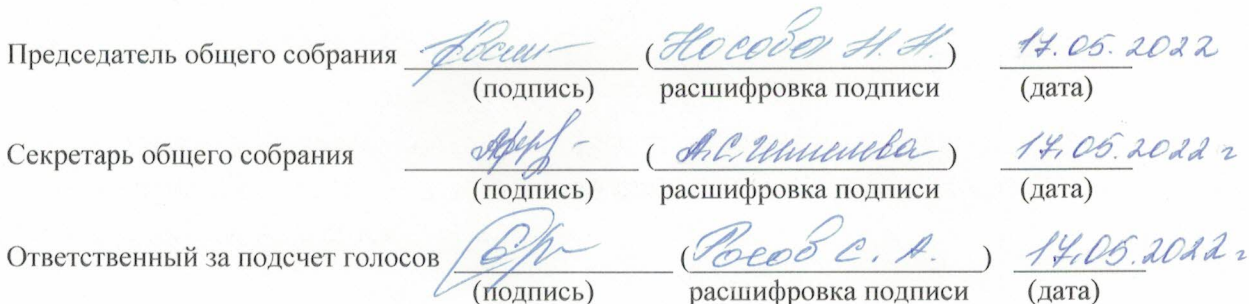 Председатель общего собрания (Носова Н. Н.) 17.05.2022
(подпись) расшифровка подписи (дата)
Секретарь общего собрания (А.С. ) 17.05.2022 г
(подпись) расшифровка подписи (дата)
Ответственный за подсчет голосов (Росов С. А.) 17.05.2022 г
(подпись) расшифровка подписи (дата)